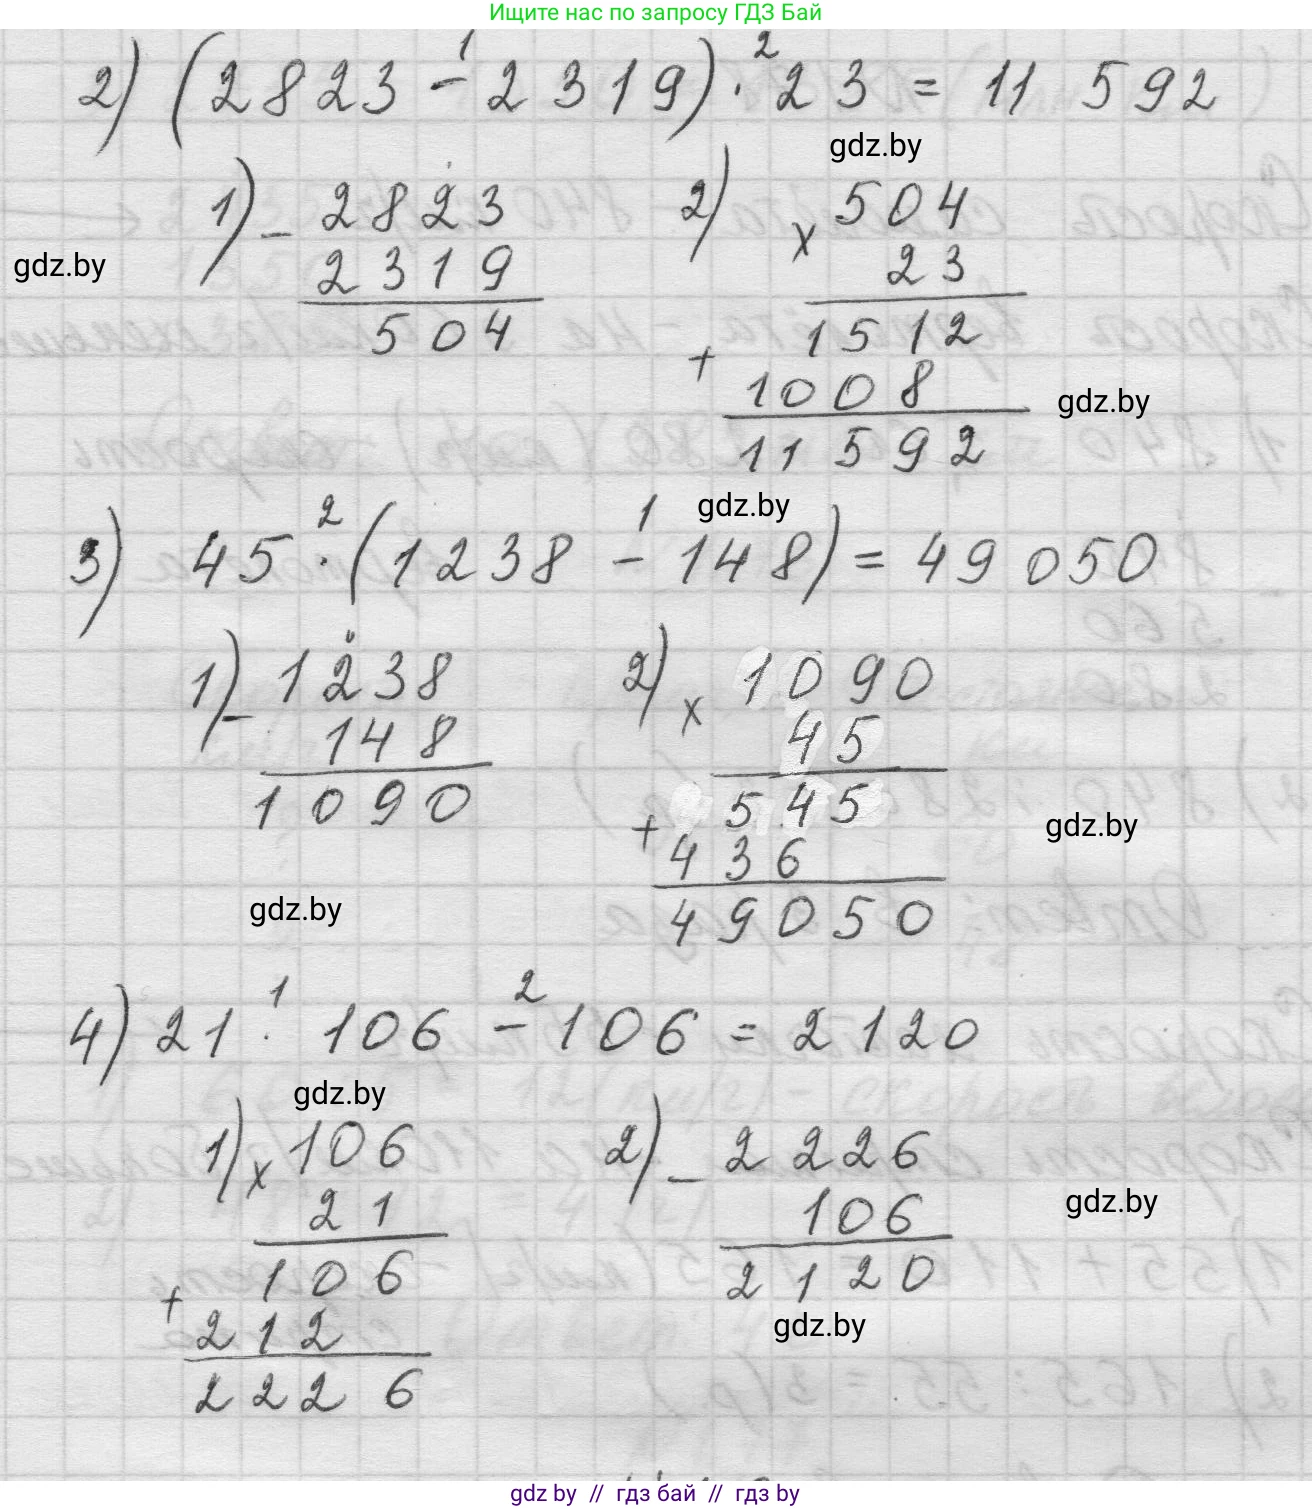 Ищите нас по запросу ГДЗ Бай
2) (2823 - 2319) · 23 = 11 592
1 2
gdz.by
1) - 2823
2319
504
gdz.by
2) x 504
23
1512
+ 1008
11592
gdz.by
gdz.by
3) 45 · (1238 - 148) = 49 050
2 1
1) - 1238
148
1090
gdz.by
2) x 1090
45
545
+ 436
49050
gdz.by
4) 21 · 106 - 106 = 2120
1 2
gdz.by
1) x 106
21
106
+ 212
2226
2) - 2226
106
2120
gdz.by
gdz.by
gdz by // гдз бай // гдз by